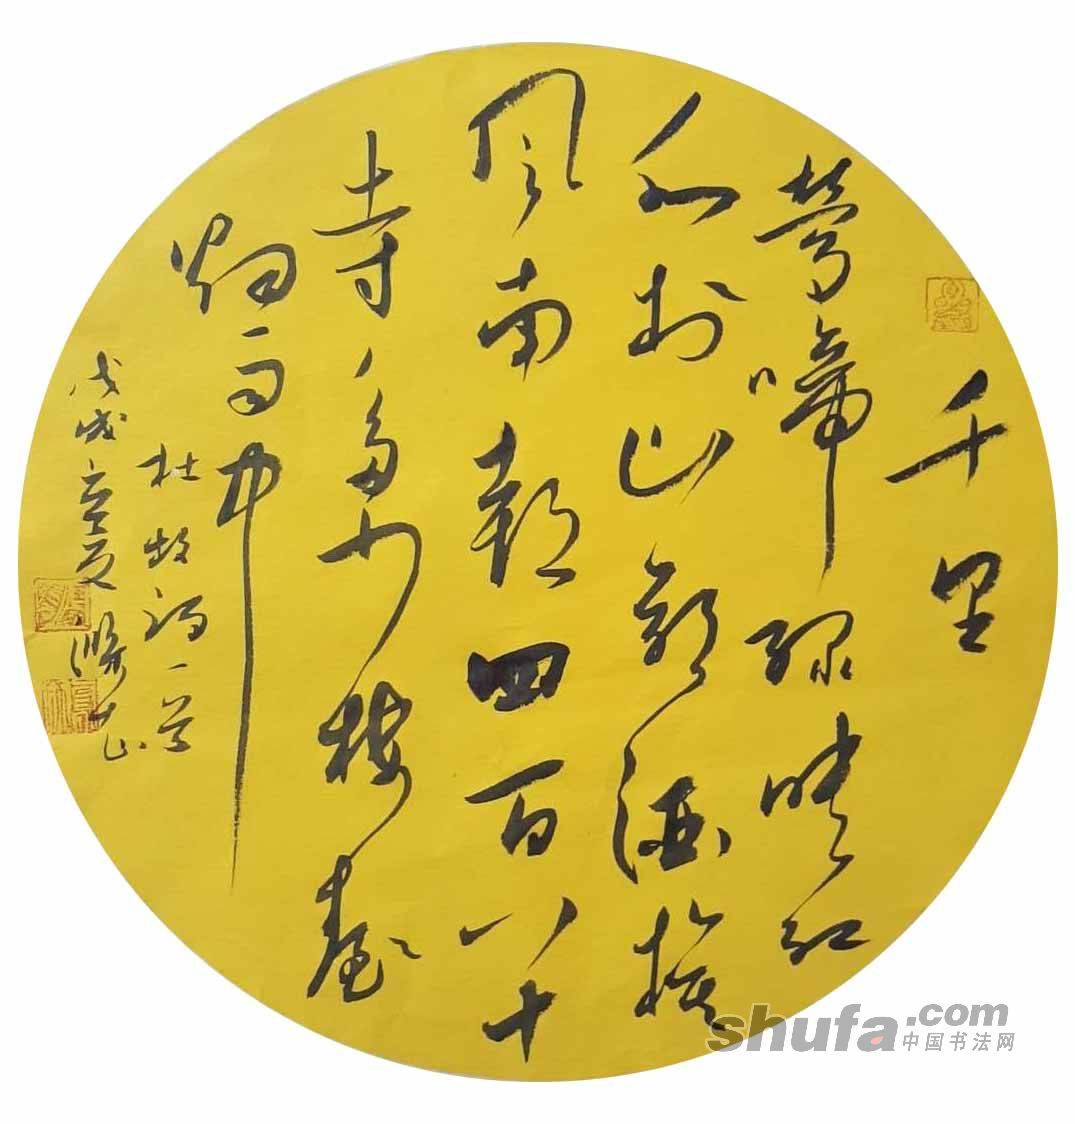 千里
莺啼绿映红
水村山郭酒旗
风南朝四百八十
寺多少楼臺
烟雨中
杜牧诗一首
戊戌夏
shufa.com
中国书法网